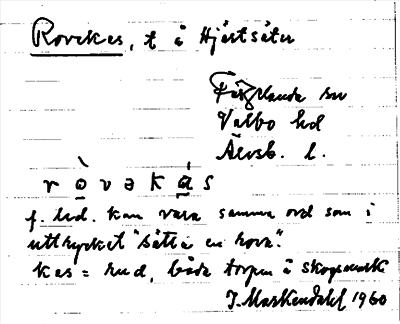 Rovekas, t å Hjärtsäter
Färglanda sn
Valbo hd
Älvsb. l.
r o v ə k a s
f. led. kan vara samma ord som i
uttrycket "sätta en rova".
kas = hud, båda torpen å skogsmark
J. Markendahl 1960